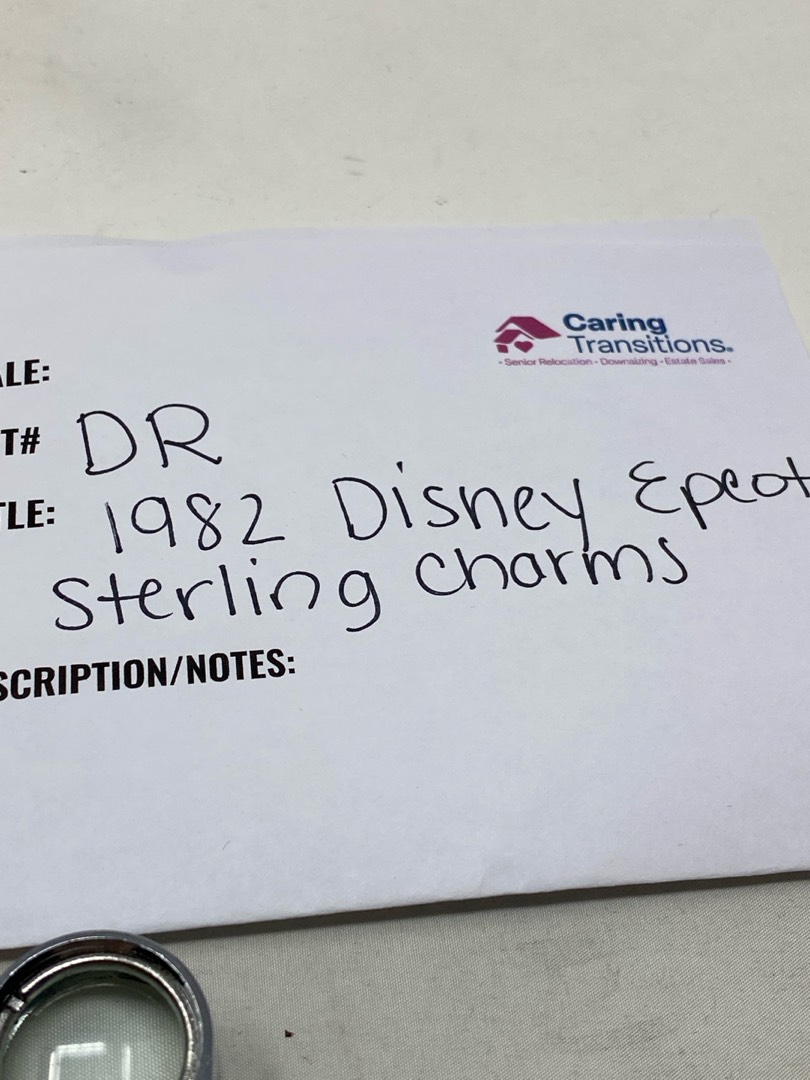 Caring
Transitions.
• Senior Relocation • Downsizing • Estate Sales •
ALE:
T# DR
TLE: 1982 Disney Epcot
Sterling Charms
SCRIPTION/NOTES: